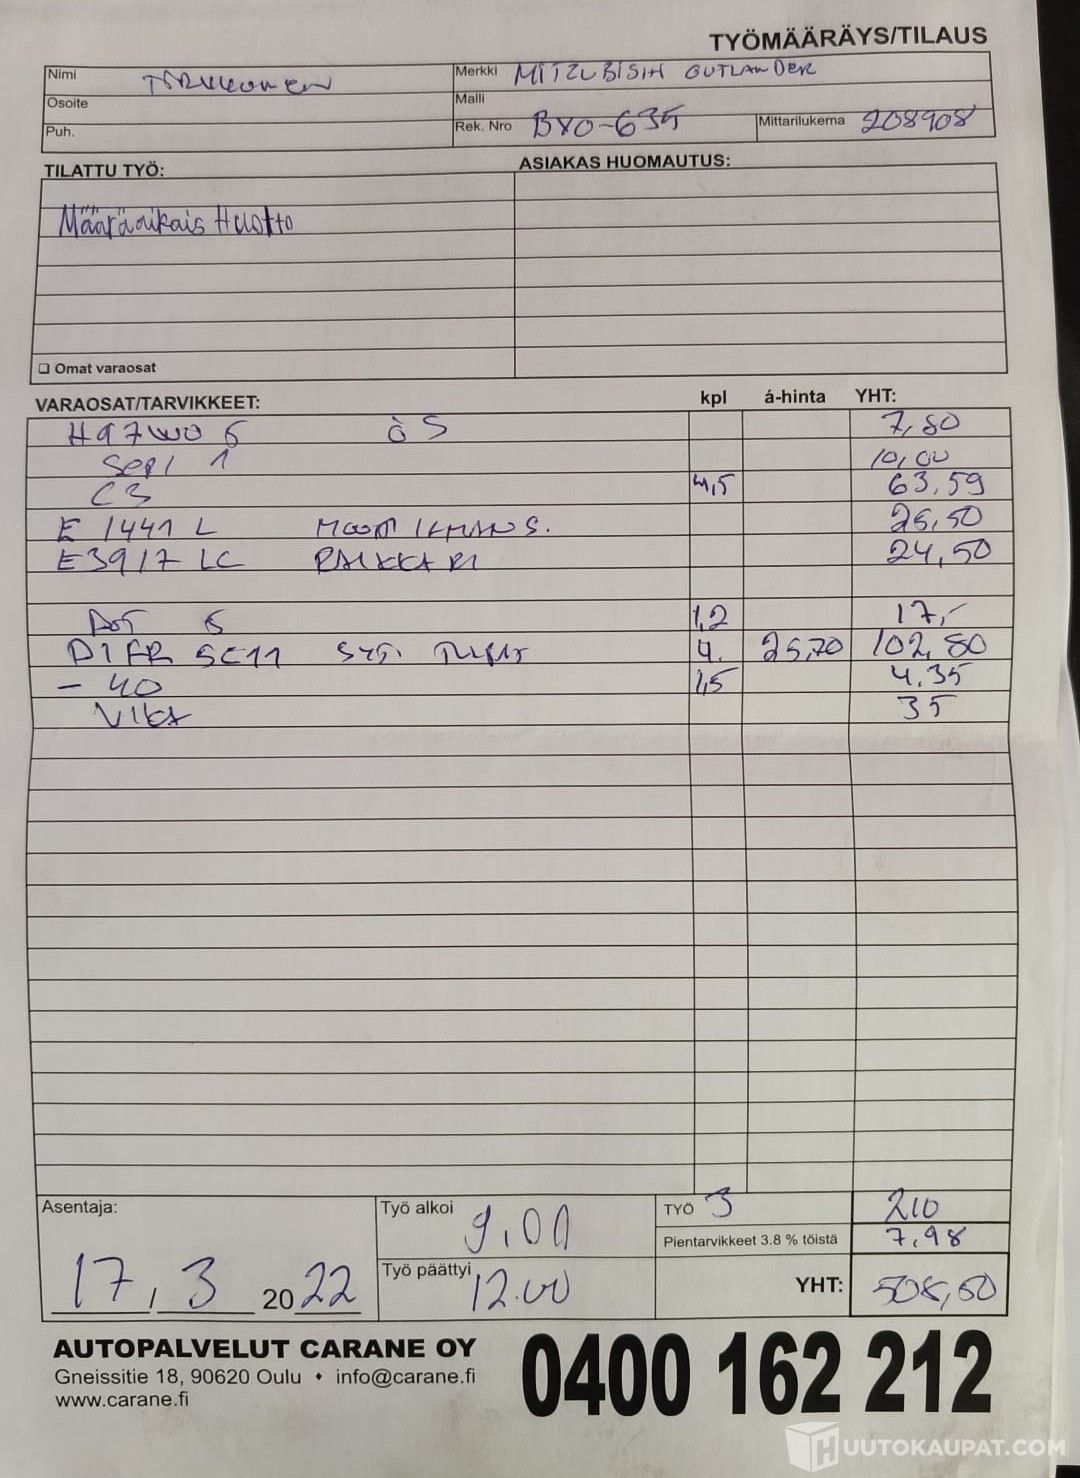 TYÖMÄÄRÄYS/TILAUS
Nimi
Merkki MITZUBISIH OUTLANDER
Osoite
Malli
Puh.
Rek. Nro BXO-635 Mittarilukema 208908
TILATTU TYÖ: ASIAKAS HUOMAUTUS:
Määräaikais Huolto
❑ Omat varaosat
VARAOSAT/TARVIKKEET: kpl á-hinta YHT:
H97W06 ÖS 7,80
10,00
C3 4,5 63,59
E 1441 L 26,50
E3917 LC RAIKKARI 24,50
DOT 5 1,2 17,-
SYT. TULPAT 4. 25,70 102,80
- 40 1,5 4.35
VIKA 35
Asentaja:
17, 3 2022
Työ alkoi 9,00
Työ päättyi 12.00
TYÖ 3 210
Pientarvikkeet 3.8 % töistä 7,98
YHT: 508,60
AUTOPALVELUT CARANE OY
Gneissitie 18, 90620 Oulu • info@carane.fi
www.carane.fi
0400 162 212
HUUTOKAUPAT.COM